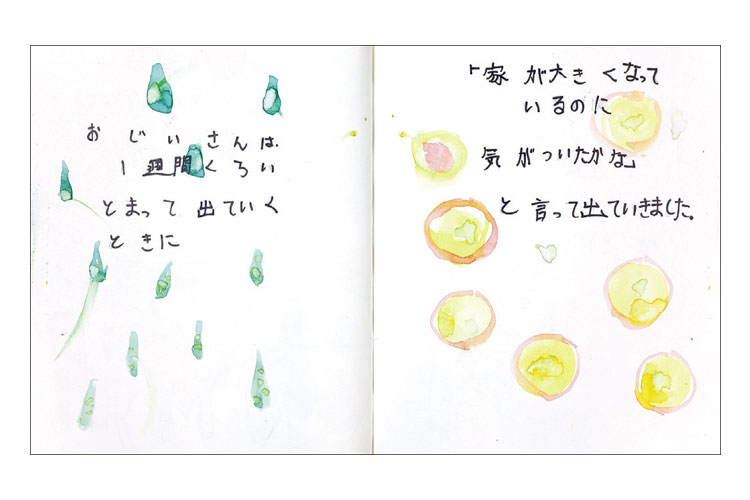 おじいさんは、
1週間くろい
とまって出ていく
ときに
「家が大きくなって
いるのに
気がついたかな」
と言って出ていきました。